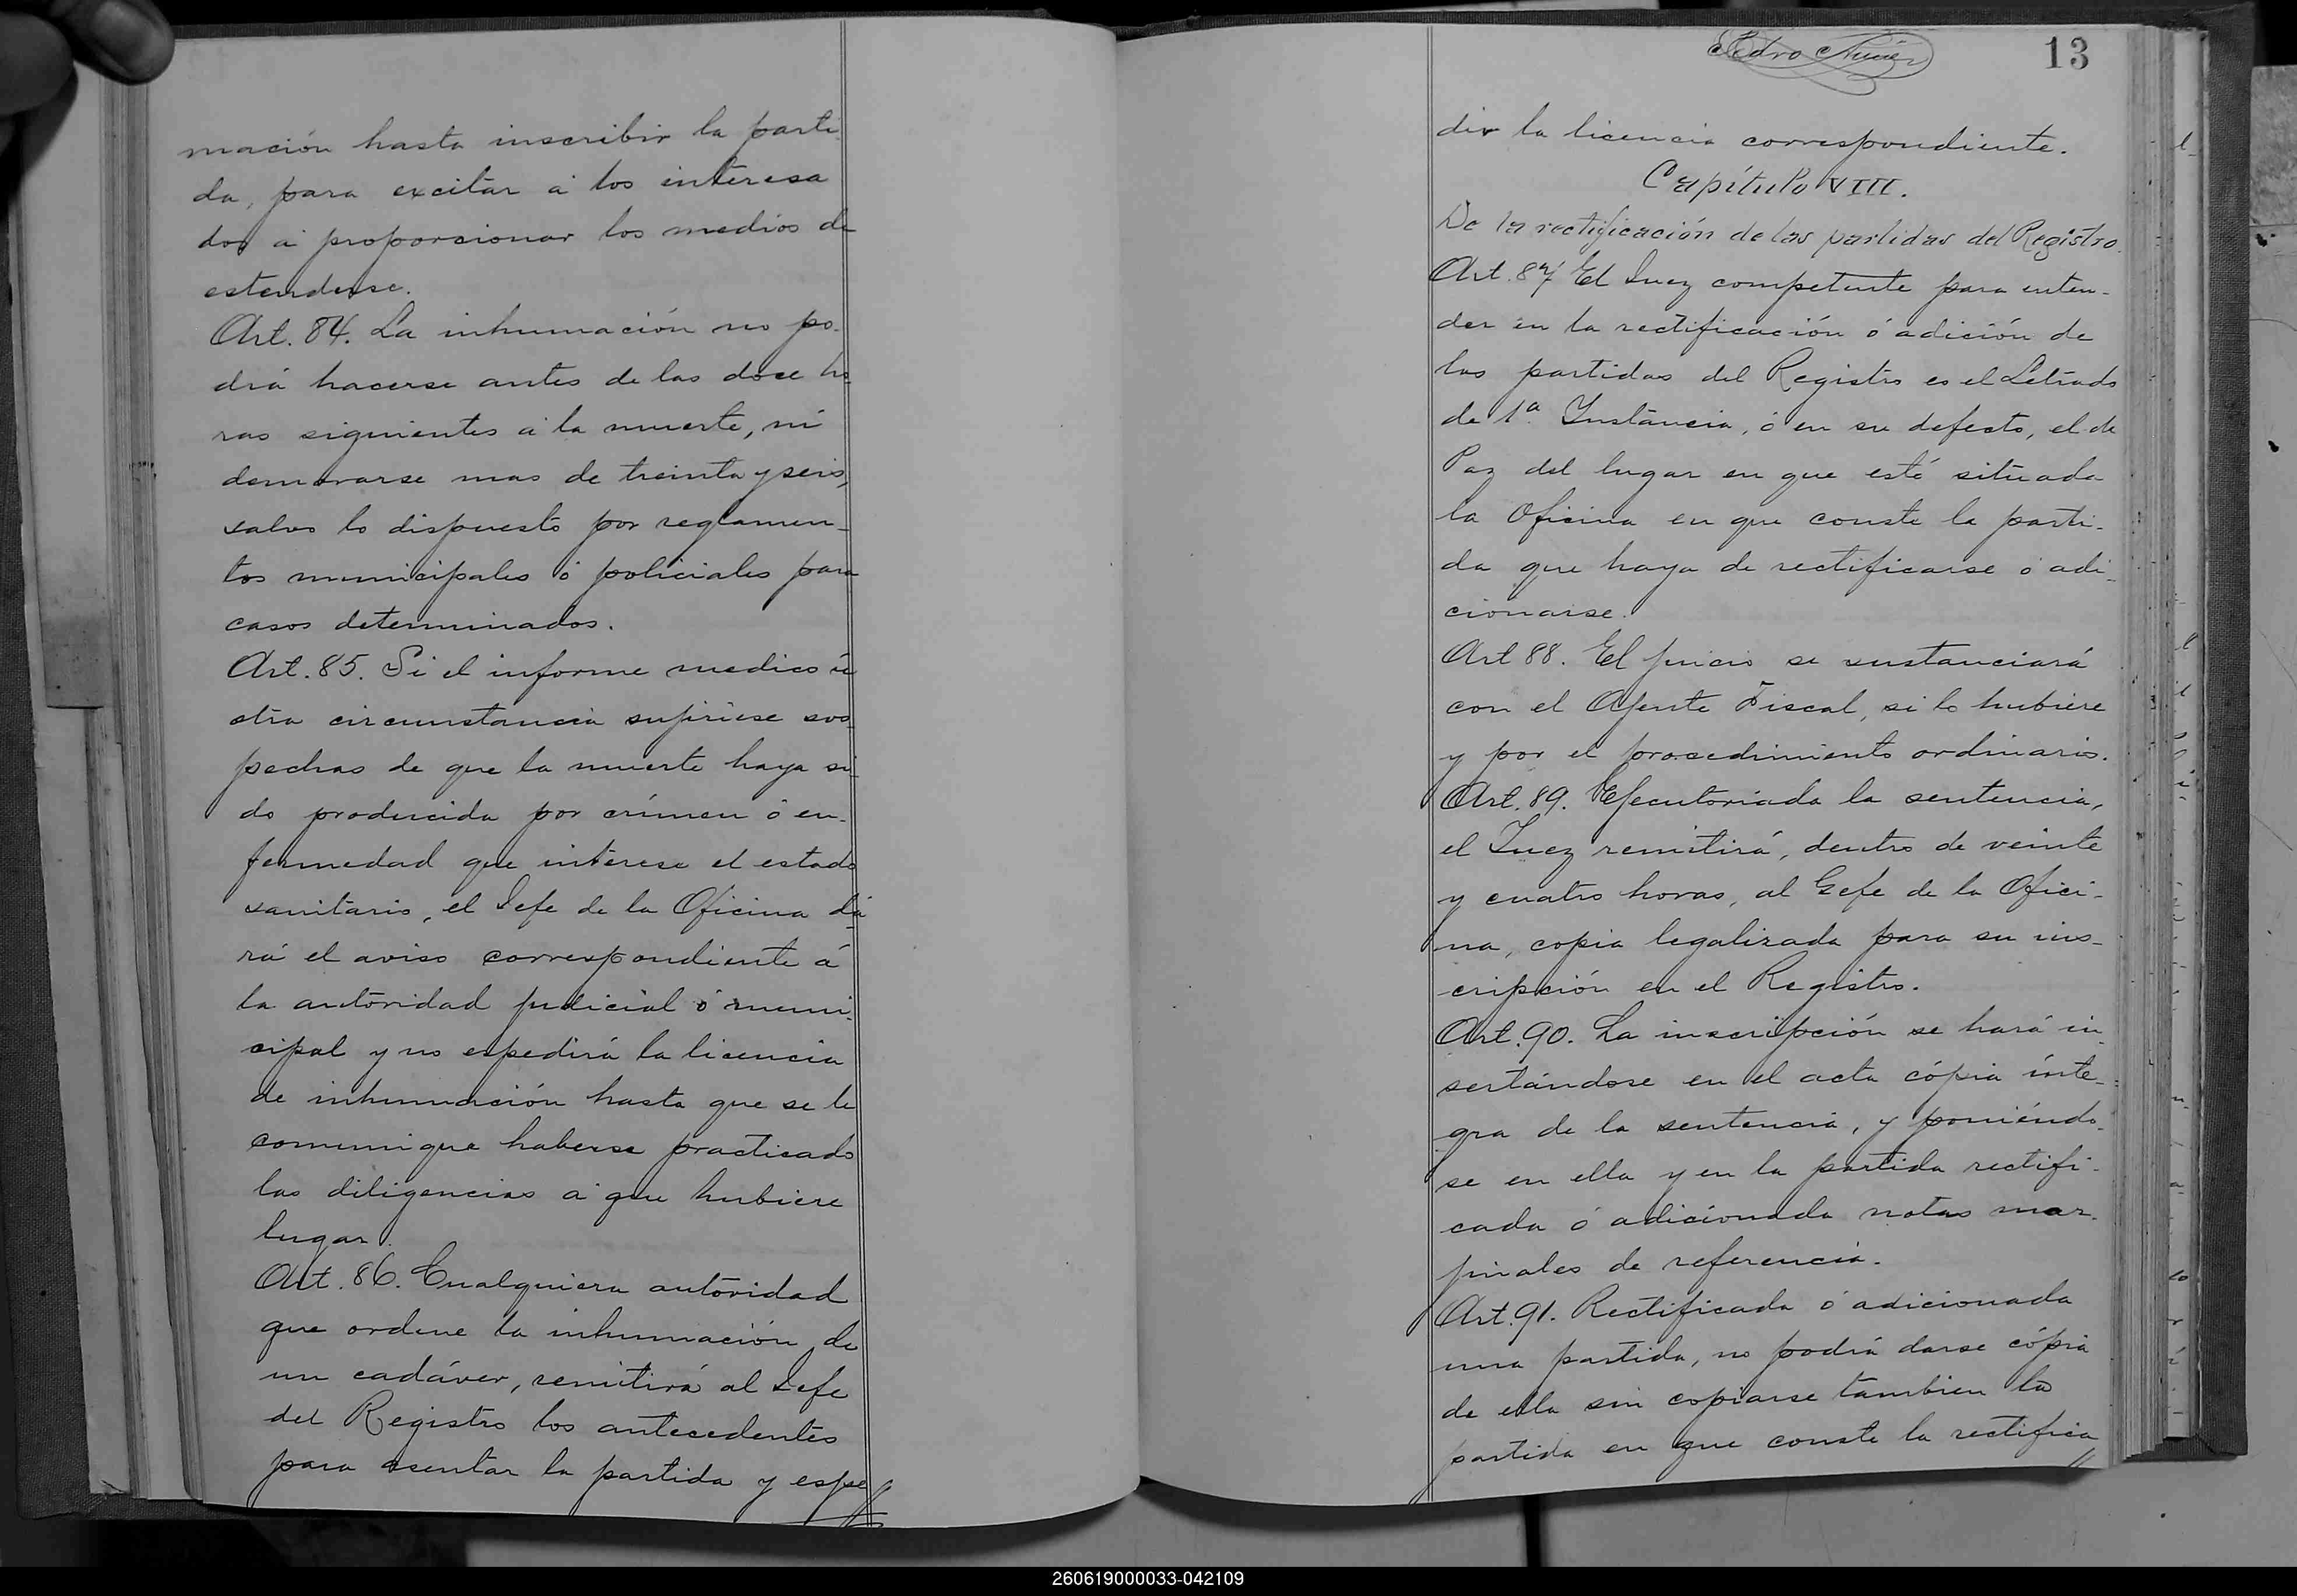 mación hasta inscribir la parti
da, para excitar á los interesa
dos á proporcionar los medios de
estenderse.
Art. 84. La inhumación no po-
drá hacerse antes de las doce ho-
ras siguientes á la muerte, ni
demorarse mas de treinta y seis,
salvo lo dispuesto por reglamen-
tos municipales ó policiales para
casos determinados.
Art. 85. Si el informe medico ú
otra circunstancia sujiriese sos-
pechas de que la muerte haya si-
do producida por crímen ó en-
fermedad que interese el estado
sanitario, el Jefe de la Oficina da-
rá el aviso correspondiente á
la autoridad judicial ó muni-
cipal y no espedirá la licencia
de inhumación hasta que se le
comunique haberse practicado
las diligencias á que hubiere
lugar.
Art. 86. Cualquiera autoridad
que ordene la inhumación de
un cadáver, remitirá al Jefe
del Registro los antecedentes
para asentar la partida y espe
Pedro Nuñez
13
dir la licencia correspondiente.
Capítulo VIII.
De la rectificación de las partidas del Registro.
Art. 87 El Juez competente para enten-
der en la rectificación ó adición de
las partidas del Registro es el Letrado
de 1ª. Instancia, ó en su defecto, el de
Paz del lugar en que esté situada
la Oficina en que conste la parti-
da que haya de rectificarse ó adi-
cionarse.
Art 88. El juicio se sustanciará
con el Ajente Fiscal, si lo hubiere
y por el procedimiento ordinario.
Art. 89. Ejecutoriada la sentencia,
el Juez remitirá, dentro de veinte
y cuatro horas, al Gefe de la Ofici-
na, copia legalizada para su ins-
cripción en el Registro.
Art. 90. La inscripción se hará in-
sertándose en el acta cópia ínte-
gra de la sentencia, y poniéndo-
se en ella y en la partida rectifi-
cada ó adicionada notas mar-
jinales de referencia.
Art. 91. Rectificada ó adicionada
una partida, no podrá darse cópia
de ella sin copiarse tambien la
partida en que conste la rectifica
260619000033-042109